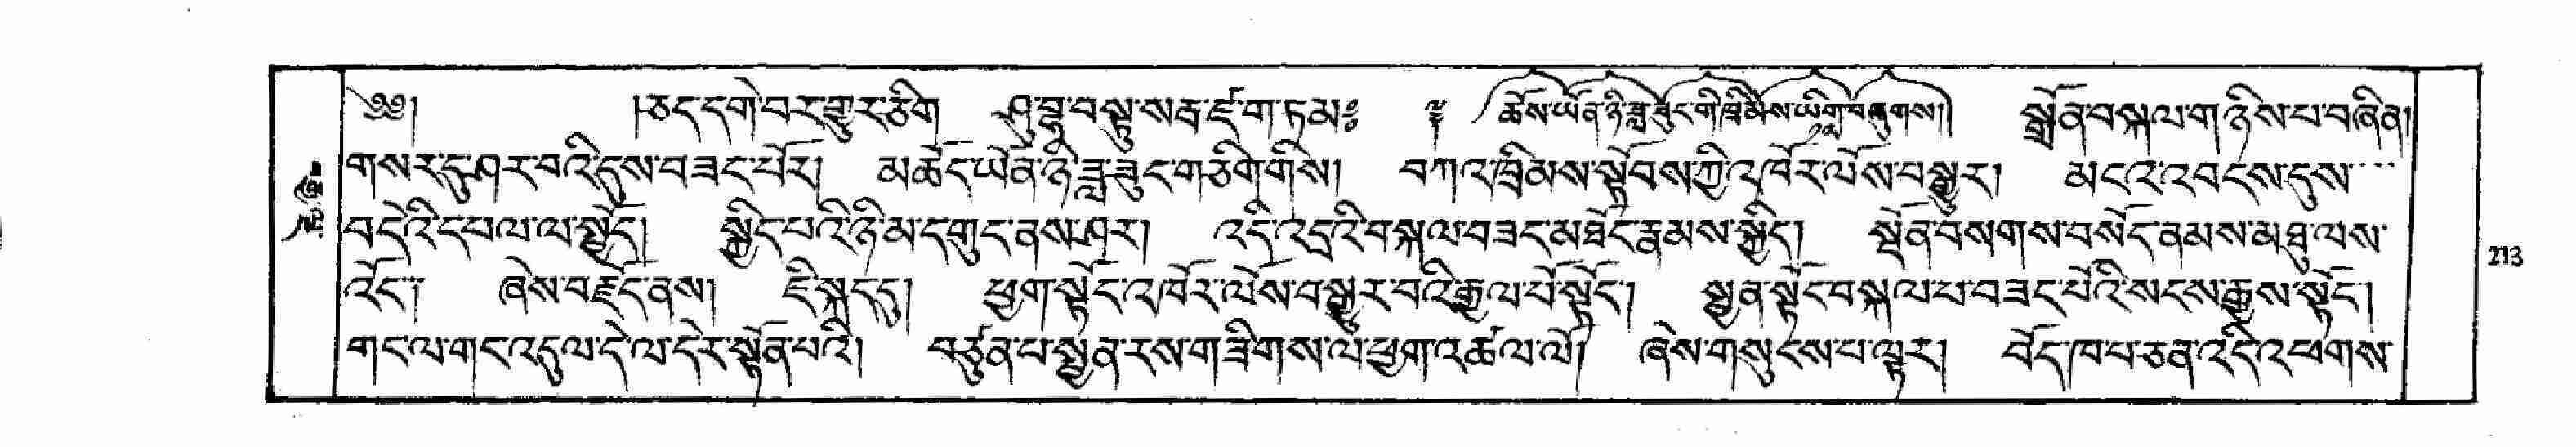 ༄༅། །ཅད་དགེ་བར་གྱུར་ཅིག ཤུ་བྷཾ་བསྟུ་སརྦ་ཛ་ག་ཏམ༔ ཆོས་ཡོན་ཉི་ཟླ་ཟུང་གི་ཁྲིམས་ཡིག་བཞུགས།། སྒྲོན་བསྐལ་གཉིས་པ་བཞིན།
གསར་དུ་ཤར་བའི་དུས་བཟང་པོར། མཆོད་ཡོན་ཉི་ཟླ་ཟུང་གཅིག་གིས། བཀའ་ཁྲིམས་སྟོབས་ཀྱི་འཁོར་ལོས་བསྒྱུར། མངའ་འབངས་དུས་
བདེའི་དཔལ་ལ་སྤྱོད། སྐྱིད་པའི་ཉི་མ་དགུང་ནས་ཤར། འདི་འདྲའི་བསྐལ་བཟང་མཐོང་རྣམས་སྐྱིད། སྔོན་བསགས་བསོད་ནམས་མཐུ་ལས་
འོང་། ཞེས་བརྗོད་ནས། ཇི་སྐད་དུ། ཕྱག་སྟོང་འཁོར་ལོས་བསྒྱུར་བའི་རྒྱལ་པོ་སྟོང་། སྤྱན་སྟོང་བསྐལ་པ་བཟང་པོའི་སངས་རྒྱས་སྟོང་།
གང་ལ་གང་འདུལ་དེ་ལ་དེར་སྟོན་པའི། བཙུན་པ་སྤྱན་རས་གཟིགས་ལ་ཕྱག་འཚལ་ལོ། ཞེས་གསུངས་པ་ལྟར། བོད་ཁ་བ་ཅན་འདི་འཕགས་
213